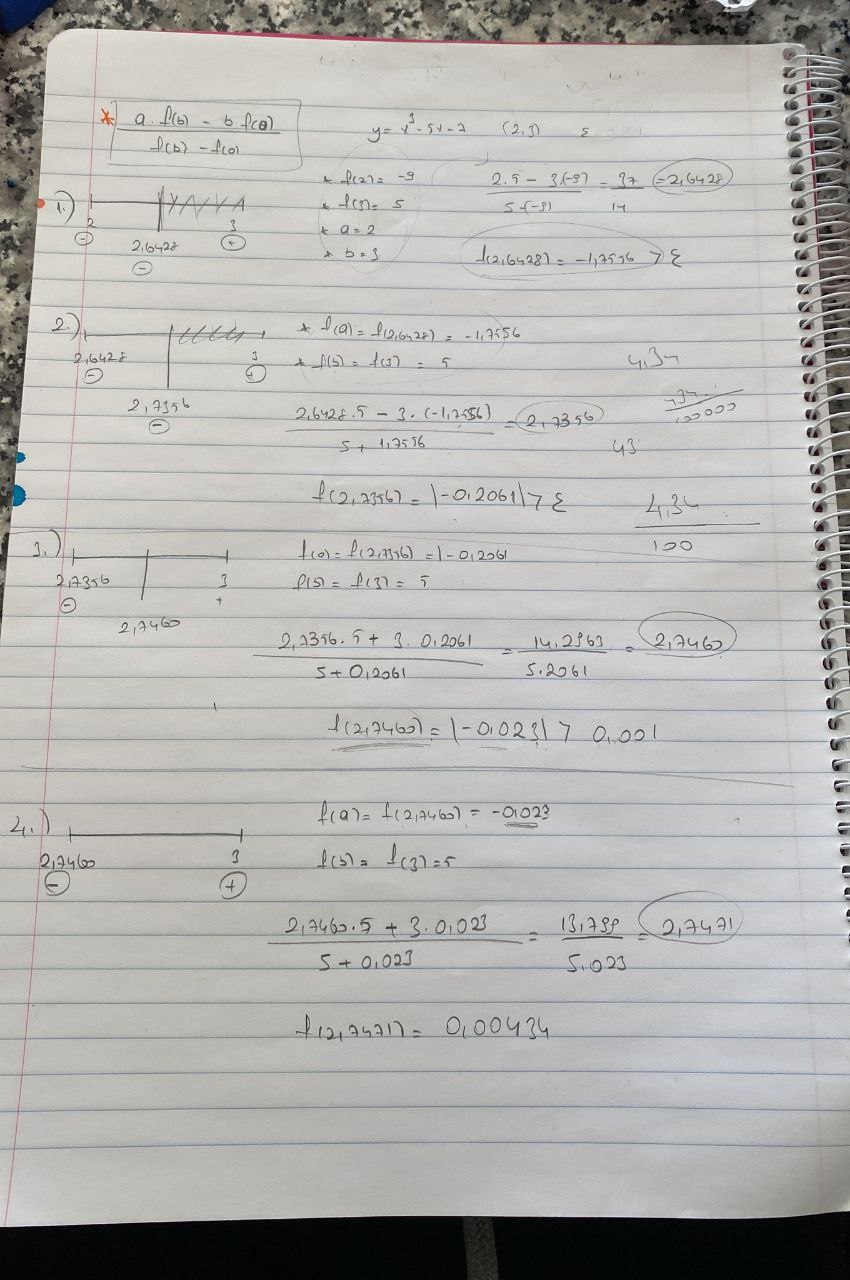 * a. f(b) - b f(a) / f(b) - f(a)
y = x³ - 5x - 7 (2,3) ε
1.) 2 ⊖ 2,6428 ⊖ 3 ⊕
* f(2) = -9
* f(3) = 5
* a = 2
* b = 3
2.5 - 3.(-9) / 5-(-9) = 37 / 14 = 2,6428
f(2,6428) = -1,7556 > ε
2.) 2,6428 ⊖ 2,7356 ⊖ 3 ⊕
* f(a) = f(2,6428) = -1,7556
* f(b) = f(3) = 5
4,34
2,6428.5 - 3.(-1,7556) / 5 + 1,7556 = 2,7356
434 / 100000
43
f(2,7356) = |-0,2061| > ε
4,34 / 100
3.) 2,7356 ⊖ 2,7460 3 +
f(a) = f(2,7356) = |-0,2061
f(b) = f(3) = 5
2,7356.5 + 3.0,2061 / 5 + 0,2061 = 14.2963 / 5.2061 = 2,7460
f(2,7460) = |-0,023| > 0,001
4.) 2,7460 ⊖ 3 ⊕
f(a) = f(2,7460) = -0,023
f(b) = f(3) = 5
2,7460.5 + 3.0,023 / 5 + 0,023 = 13,799 / 5.023 = 2,7471
f(2,7471) = 0,00434